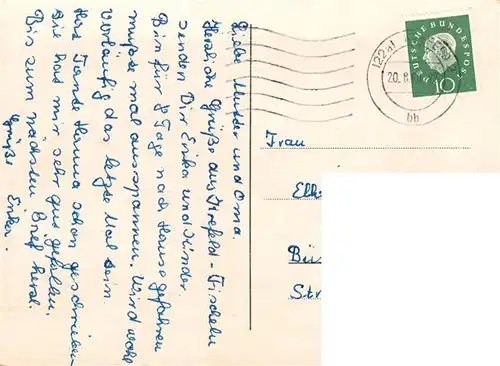 Liebe Mutter und Oma.
Herzliche Grüße aus Krefeld-Fischeln
senden Dir Erika und Kinder.
Bin für 8 Tage nach Hause gefahren
mußte mal ausspannen. Wird wohl
vorläufig das letzte Mal sein.
Hat Tante Hanna schon geschrieben
Die hat mir sehr gut gefallen.
Bis zum nächsten Brief herzl.
Grüße Erika.
DEUTSCHE BUNDESPOST
10
(22a)
20.8.
bb
Frau
Str